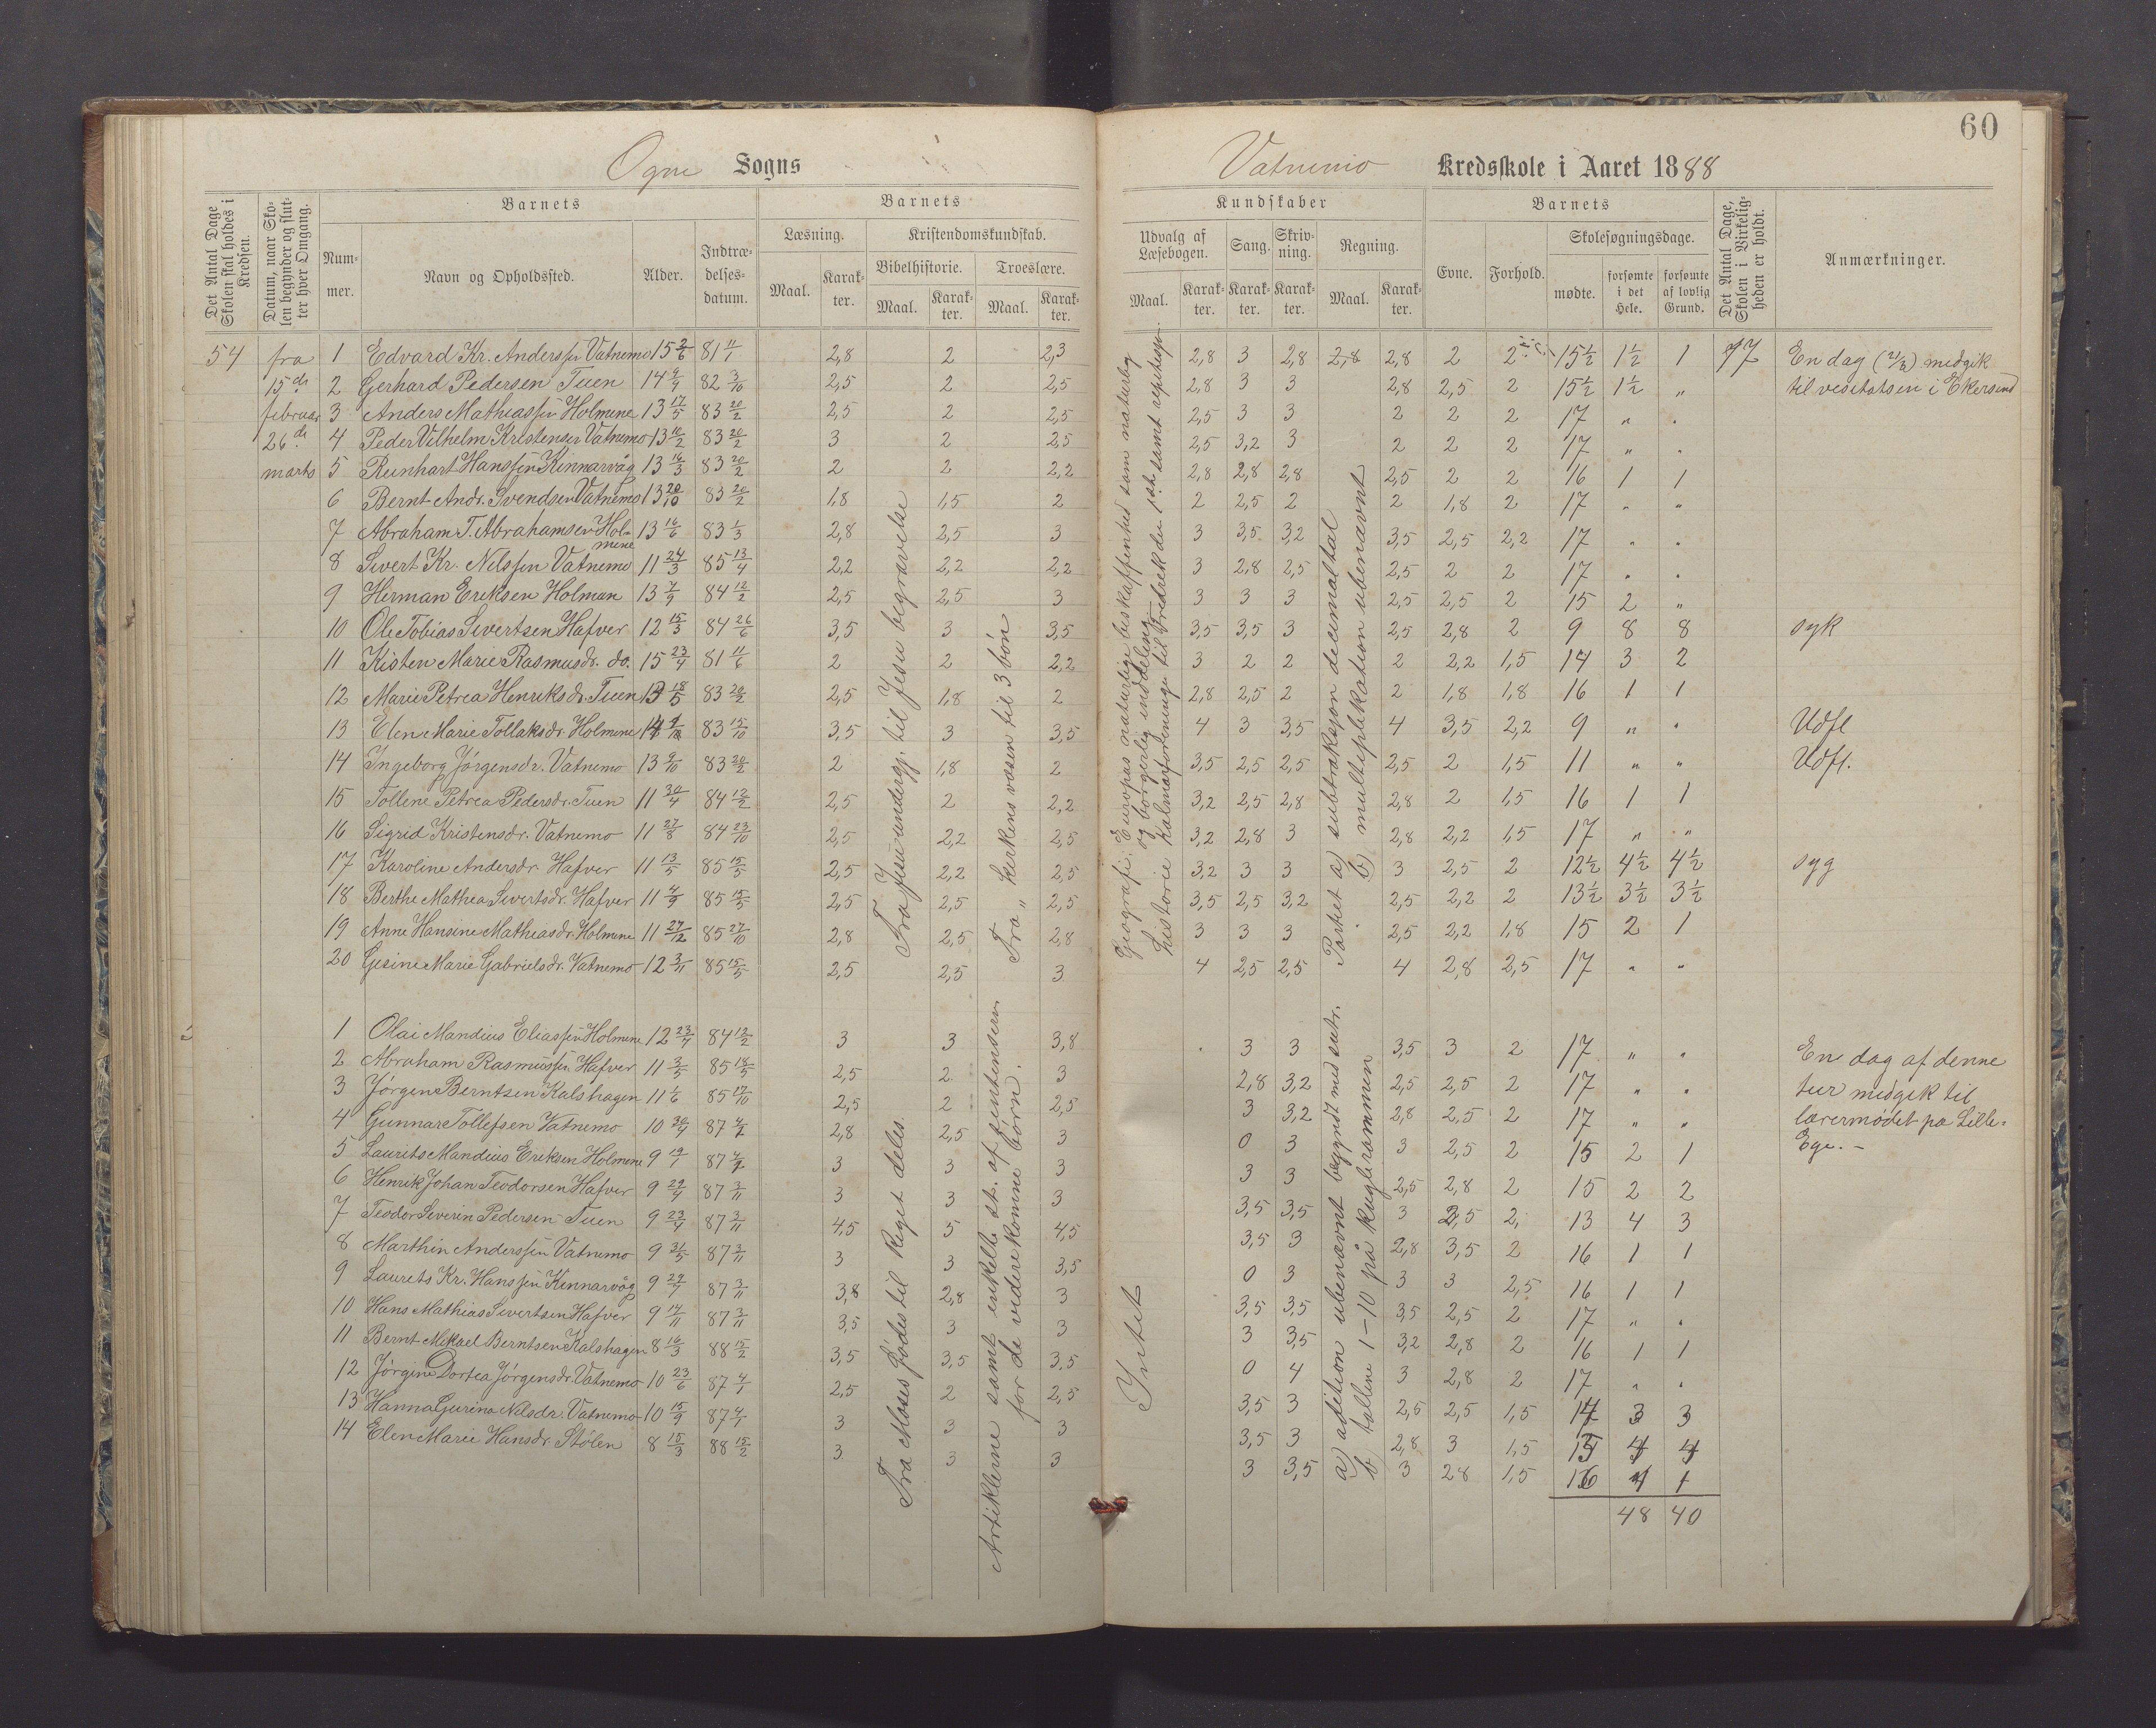 60
Ogne Sogns
Vatnemo Kredsskole i Aaret 1888
Det Antal Dage Skolen skal holdes i Kredsen.
Datum, naar Skolen begynder og slutter hver Omgang.
Barnets
Nummer.
Navn og Opholdssted.
Alder.
Indtrædelsesdatum.
Barnets
Læsning.
Maal.
Karakter.
Kristendomskundskab.
Bibelhistorie.
Maal.
Karakter.
Troeslære.
Maal.
Karakter.
Kundskaber
Udvalg af Læsebogen.
Maal.
Karakter.
Sang.
Karakter.
Skrivning.
Karakter.
Regning.
Maal.
Karakter.
Barnets
Evne.
Forhold.
Skolesøgningsdage.
mødte.
forsømte i det Hele.
forsømte af lovlig Grund.
Det Antal Dage, Skolen i Virkeligheden er holdt.
Anmærkninger.
54 fra 15de februar 26de marts
1 Edvard Kr. Anderssen Vatnemo 15 2/6 81 11/1 2,8 2 2,3 2,8 3 2,8 2,8 2,8 2 2 15½ 1½ 1 17 En dag (21/3) medgik
2 Gerhard Pedersen Tuen 14 4/9 82 3/10 2,5 2 2,5 2,8 3 3 2,8 2,5 2 15½ 1½ " til i Ekersund
3 Anders Mathiassen Holmene 13 17/5 83 20/2 2,5 2 2,5 2,5 3 3 2 2 2 17 " "
4 Peder Vilhelm Kristensen Vatnemo 13 10/2 83 20/2 3 2 2,5 2,5 3,2 3 2 2 2 17 " "
5 Reinhart Hanssen Kinnarvåg 13 16/3 83 20/2 2 2 2,2 2,8 2,8 2,8 2,5 2 2 16 1 1
6 Bernt Andr. Svendsen Vatnemo 13 20/10 83 20/2 1,8 1,5 2 2 2,5 2 2 1,8 2 17 " "
7 Abraham T. Abrahamsen Holmene 13 16/6 83 1/3 2,8 2,5 3 3 3,5 3,2 3,5 2,5 2,2 17 " "
8 Sivert Kr. Nilssen Vatnemo 11 24/3 85 13/4 2,2 2,2 2,2 3 2,8 2,5 2,5 2 2 17 " "
9 Herman Eriksen Holman 13 7/9 84 12/2 2,5 2,5 3 3 3 3 2,5 2,5 2 15 2 "
10 Ole Tobias Sivertsen Hafver 12 15/3 84 26/6 3,5 3 3,5 3,5 3,5 3 2,5 2,8 2 9 8 8 syk
11 Kisten Marie Rasmusdr. do. 15 23/4 81 11/6 2 2 2,2 3 2 2 2 2,2 1,5 14 3 2
12 Marie Petrea Henriksdr. Tuen 13 18/5 83 20/2 2,5 1,8 2 2,8 2,5 2 2 1,8 1,8 16 1 1
13 Elen Marie Tollaksdr. Holmene 14 83 15/10 3,5 3 3,5 4 3 3,5 4 3,5 2,2 9 " " Udfl
14 Ingeborg Jørgensdr. Vatnemo 13 9/10 83 20/2 2 1,8 2 3,5 2,5 2,5 2,5 2 1,5 11 " " Udfl.
15 Tollene Petrea Pedersdr. Tuen 11 30/4 84 12/2 2,5 2 2,2 3,2 2,5 2,8 2,8 2 1,5 16 1 1
16 Sigrid Kristensdr. Vatnemo 11 27/8 84 23/10 2,5 2,2 2,5 3,2 2,8 3 2,8 2,2 1,5 17 " "
17 Karoline Andersdr Hafver 11 13/5 85 15/5 2,5 2,2 2,5 3,2 3 3 3 2,5 2 12½ 4½ 4½ syg
18 Berthe Mathea Sivertsdr. Hafver 11 4/9 85 15/5 2,5 2,5 2,5 3,5 2,5 3,2 2,5 2,2 2 13½ 3½ 3½
19 Anne Hansine Mathiasdr. Holmene 11 27/12 85 27/10 2,8 2,5 2,8 3 3 3 2,5 2,2 1,8 15 2 1
20 Gesine Marie Gabrielsdr. Vatnemo 12 3/11 85 15/5 2,5 2,5 3 4 2,5 2,5 4 2,8 2,5 17 " "
Fra Jesu undergj. til Jesu begravelse
Fra " kirkens væsen til 3 bøn
Geografi: Europas naturlige beskaffenhed som naturlig
og borgerlig inddeling
historie Kalmarforeninge til Fredrik den 1ste samt repitisjon.
Parket a) subtraksjon decimaltal
b) multiplikation ubenævnt
1 Olai Mandius Eliassen Holmene 12 23/4 84 12/2 3 3 3,8 3 3 3,5 3 2 17 " " En dag af denne
2 Abraham Rasmussen Hafver 11 3/5 85 18/5 2,5 2 3 2,8 3,2 2,5 2,5 2 17 " " tur medgik til
3 Jørgen Berntsen Kalshagen 11 1/6 85 17/10 2,5 2 2,5 3 3,2 2,8 2,5 2 17 " " lærermødet pa Lille-
4 Gunnar Tollefsen Vatnemo 10 30/4 87 4/1 2,8 2,5 3 0 3 3 2,5 2 15 2 1 Ege. -
5 Laurits Mandius Eriksen Holmene 9 19/1 87 4/1 3 3 3 3 3 2,5 2,8 2 15 2 2
6 Henrik Johan Teodorsen Hafver 9 29/4 87 3/11 3 3 3 3,5 3,5 3 2,5 2, 13 4 3
7 Teodor Severin Pedersen Tuen 9 23/4 87 3/11 4,5 5 4,5 3,5 3 2,8 3,5 2 16 1 1
8 Marthin Anderssen Vatnemo 9 31/5 87 3/11 3 3 3,5 0 3 3 3 2,5 16 1 1
9 Laurits Kr. Hanssen Kinnarvåg 9 29/7 87 3/11 3,8 2,8 3 3,5 3,5 3,5 2,5 2 17 " "
10 Hans Mathias Sivertsen Hafver 9 14/11 87 3/11 3,5 3 3 3 3,5 3,2 2,8 2 16 1 1
11 Bernt Mikael Berntsen Kalshagen 8 16/3 88 15/2 3,5 3,5 3,5 0 4 3 2,8 2 17 " "
12 Jørgine Dortea Jørgensdr. Vatnemo 10 23/6 87 4/1 2,5 2 2,5 3,5 3 2,5 2,5 1,5 14 3 3
13 Hanna Gurina Nilsdr. Vatnemo 10 15/9 87 4/1 3 3 3 3,5 3 2,8 3 1,5 13 4 4
14 Elen Marie Hansdr. Stølen 8 15/3 88 15/2 3 3 3 3 3,5 3 2,8 1,5 16 1 1
48 40
Fra Moses fødes til Riget deles.
Artiklerne samt enkelte st. af
for de viderekomne børn.
Intet
a) adition ubenævnt begyndt med subtr.
b) tallene 1-10 på kuglerammen